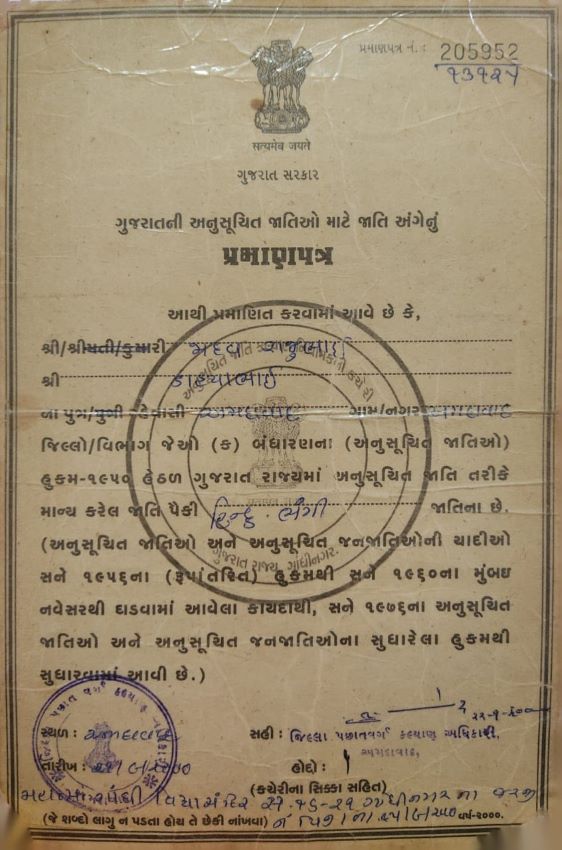 પ્રમાણપત્ર નં. : 205952
૧૩૧૨૫
સત્યમેવ જયતે
ગુજરાત સરકાર
ગુજરાતની અનુસૂચિત જાતિઓ માટે જાતિ અંગેનું
પ્રમાણપત્ર
આથી પ્રમાણિત કરવામાં આવે છે કે,
શ્રી/શ્રીમતી/કુમારી રાજુભાઈ
શ્રી ડાહ્યાભાઈ
ના પુત્ર/પુત્રી રહેવાસી અમદાવાદ ગામ/નગર અમદાવાદ
જિલ્લો/વિભાગ જેઓ (ક) બંધારણના (અનુસૂચિત જાતિઓ)
હુકમ-૧૯૫૦ હેઠળ ગુજરાત રાજ્યમાં અનુસૂચિત જાતિ તરીકે
માન્ય કરેલ જાતિ પૈકી હિન્દુ ભંગી જાતિના છે.
(અનુસૂચિત જાતિઓ અને અનુસૂચિત જનજાતિઓની યાદીઓ
સને ૧૯૫૬ના (રૂપાંતરિત) હુકમથી સને ૧૯૬૦ના મુંબઇ
નવેસરથી ઘડવામાં આવેલા કાયદાથી, સને ૧૯૭૬ના અનુસૂચિત
જાતિઓ અને અનુસૂચિત જનજાતિઓના સુધારેલા હુકમથી
સુધારવામાં આવી છે.)
સ્થળ : અમદાવાદ
સહી : જિલ્લા પછાતવર્ગ કલ્યાણ અધિકારી,
અમદાવાદ,
તારીખ :
હોદ્દો :
(કચેરીના સિક્કા સહિત)
વિદ્યામંદિર ગાંધીનગર ના
(જે શબ્દો લાગુ ન પડતા હોય તે છેકી નાંખવા) વર્ષ-૨૦૦૦.